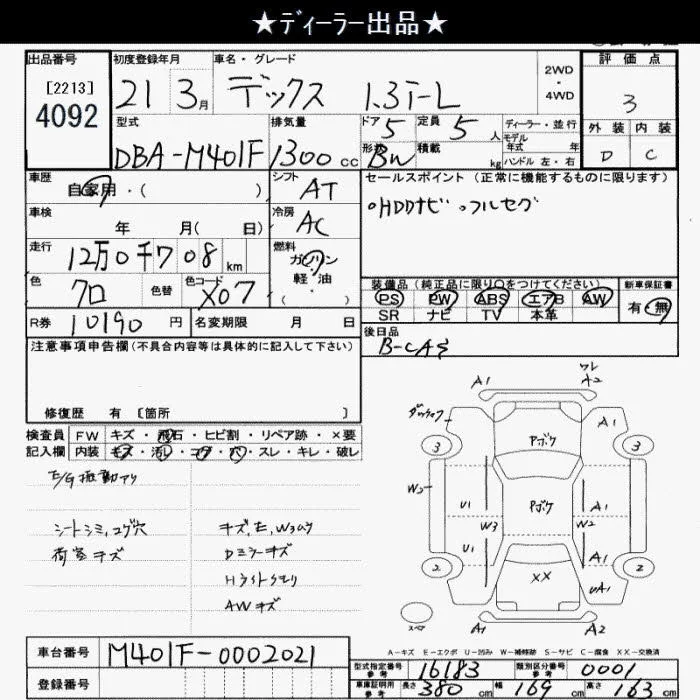 ★ディーラー出品★
出品番号 初度登録年月 車名・グレード 2WD・4WD 評価点
[2213]
4092
21 3月 デックス 1.3i-L 3
型式 排気量 ドア 定員 ディーラー・並行 外装 内装
DBA-M401F 1300cc 5 5人 モデル年式 年 D C
形状 BW 積載 kg ハンドル 左・右
車歴 自家用・( ) シフト AT セールスポイント (正常に機能するものに限ります)
車検 年 月( 日) 冷房 AC 。HDDナビ 。フルセグ
走行 12万0千708km 燃料 ガソリン 軽・油 ・( )
色 クロ 色替 色コード X07 装備品(純正品に限り○をつけてください) 新車保証書
PS PW ABS エアB AW 有・無
SR ナビ TV 本革
R券 10190円 名変期限 月 日 後日品
注意事項申告欄(不具合内容等は具体的に記入して下さい) B-CAS
修復歴 有 [箇所 ]
検査員 FW キズ・飛石・ヒビ割・リペア跡・×要
記入欄 内装 キズ・汚レ・コゲ・穴・スレ・キレ・破レ
E/G振動アリ
シートシミ,コゲ穴 キズ,E,W3ムク
荷室キズ Dミラーキズ
Hライトクモリ
AWキズ
A1 ワレ A2
A1
3 Pボケ 3
W2 U1 W3 Pボケ W2 A1
U1 A1
2 XX 2
UA1
スペア A1 A2
A-キズ E-エクボ U-凹み W-補修跡 S-サビ C-腐食 XX-交換済
車台番号 M401F-0002021
登録番号
型式指定番号 参考 16183 類別区分番号 参考 0001
車庫証明用 参考 長さ 380cm 幅 169cm 高さ 163cm